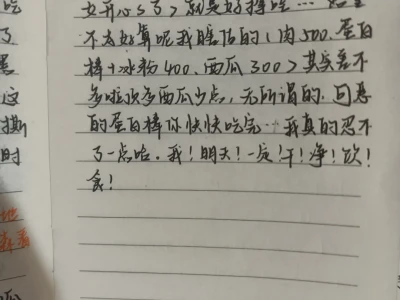 吃
了
这
撕
时
地
女开心s了>就莫好撑哇…始
不太好算呢我瞎估的(肉500.蛋白
棒+冰粉400.西瓜300>其实差不
多啦顶多西瓜少点,无所谓的.可恶
的蛋白棒你快快吃完…我真的忍不
了一点哈.我!明天!一定!干!净!饮!
食!